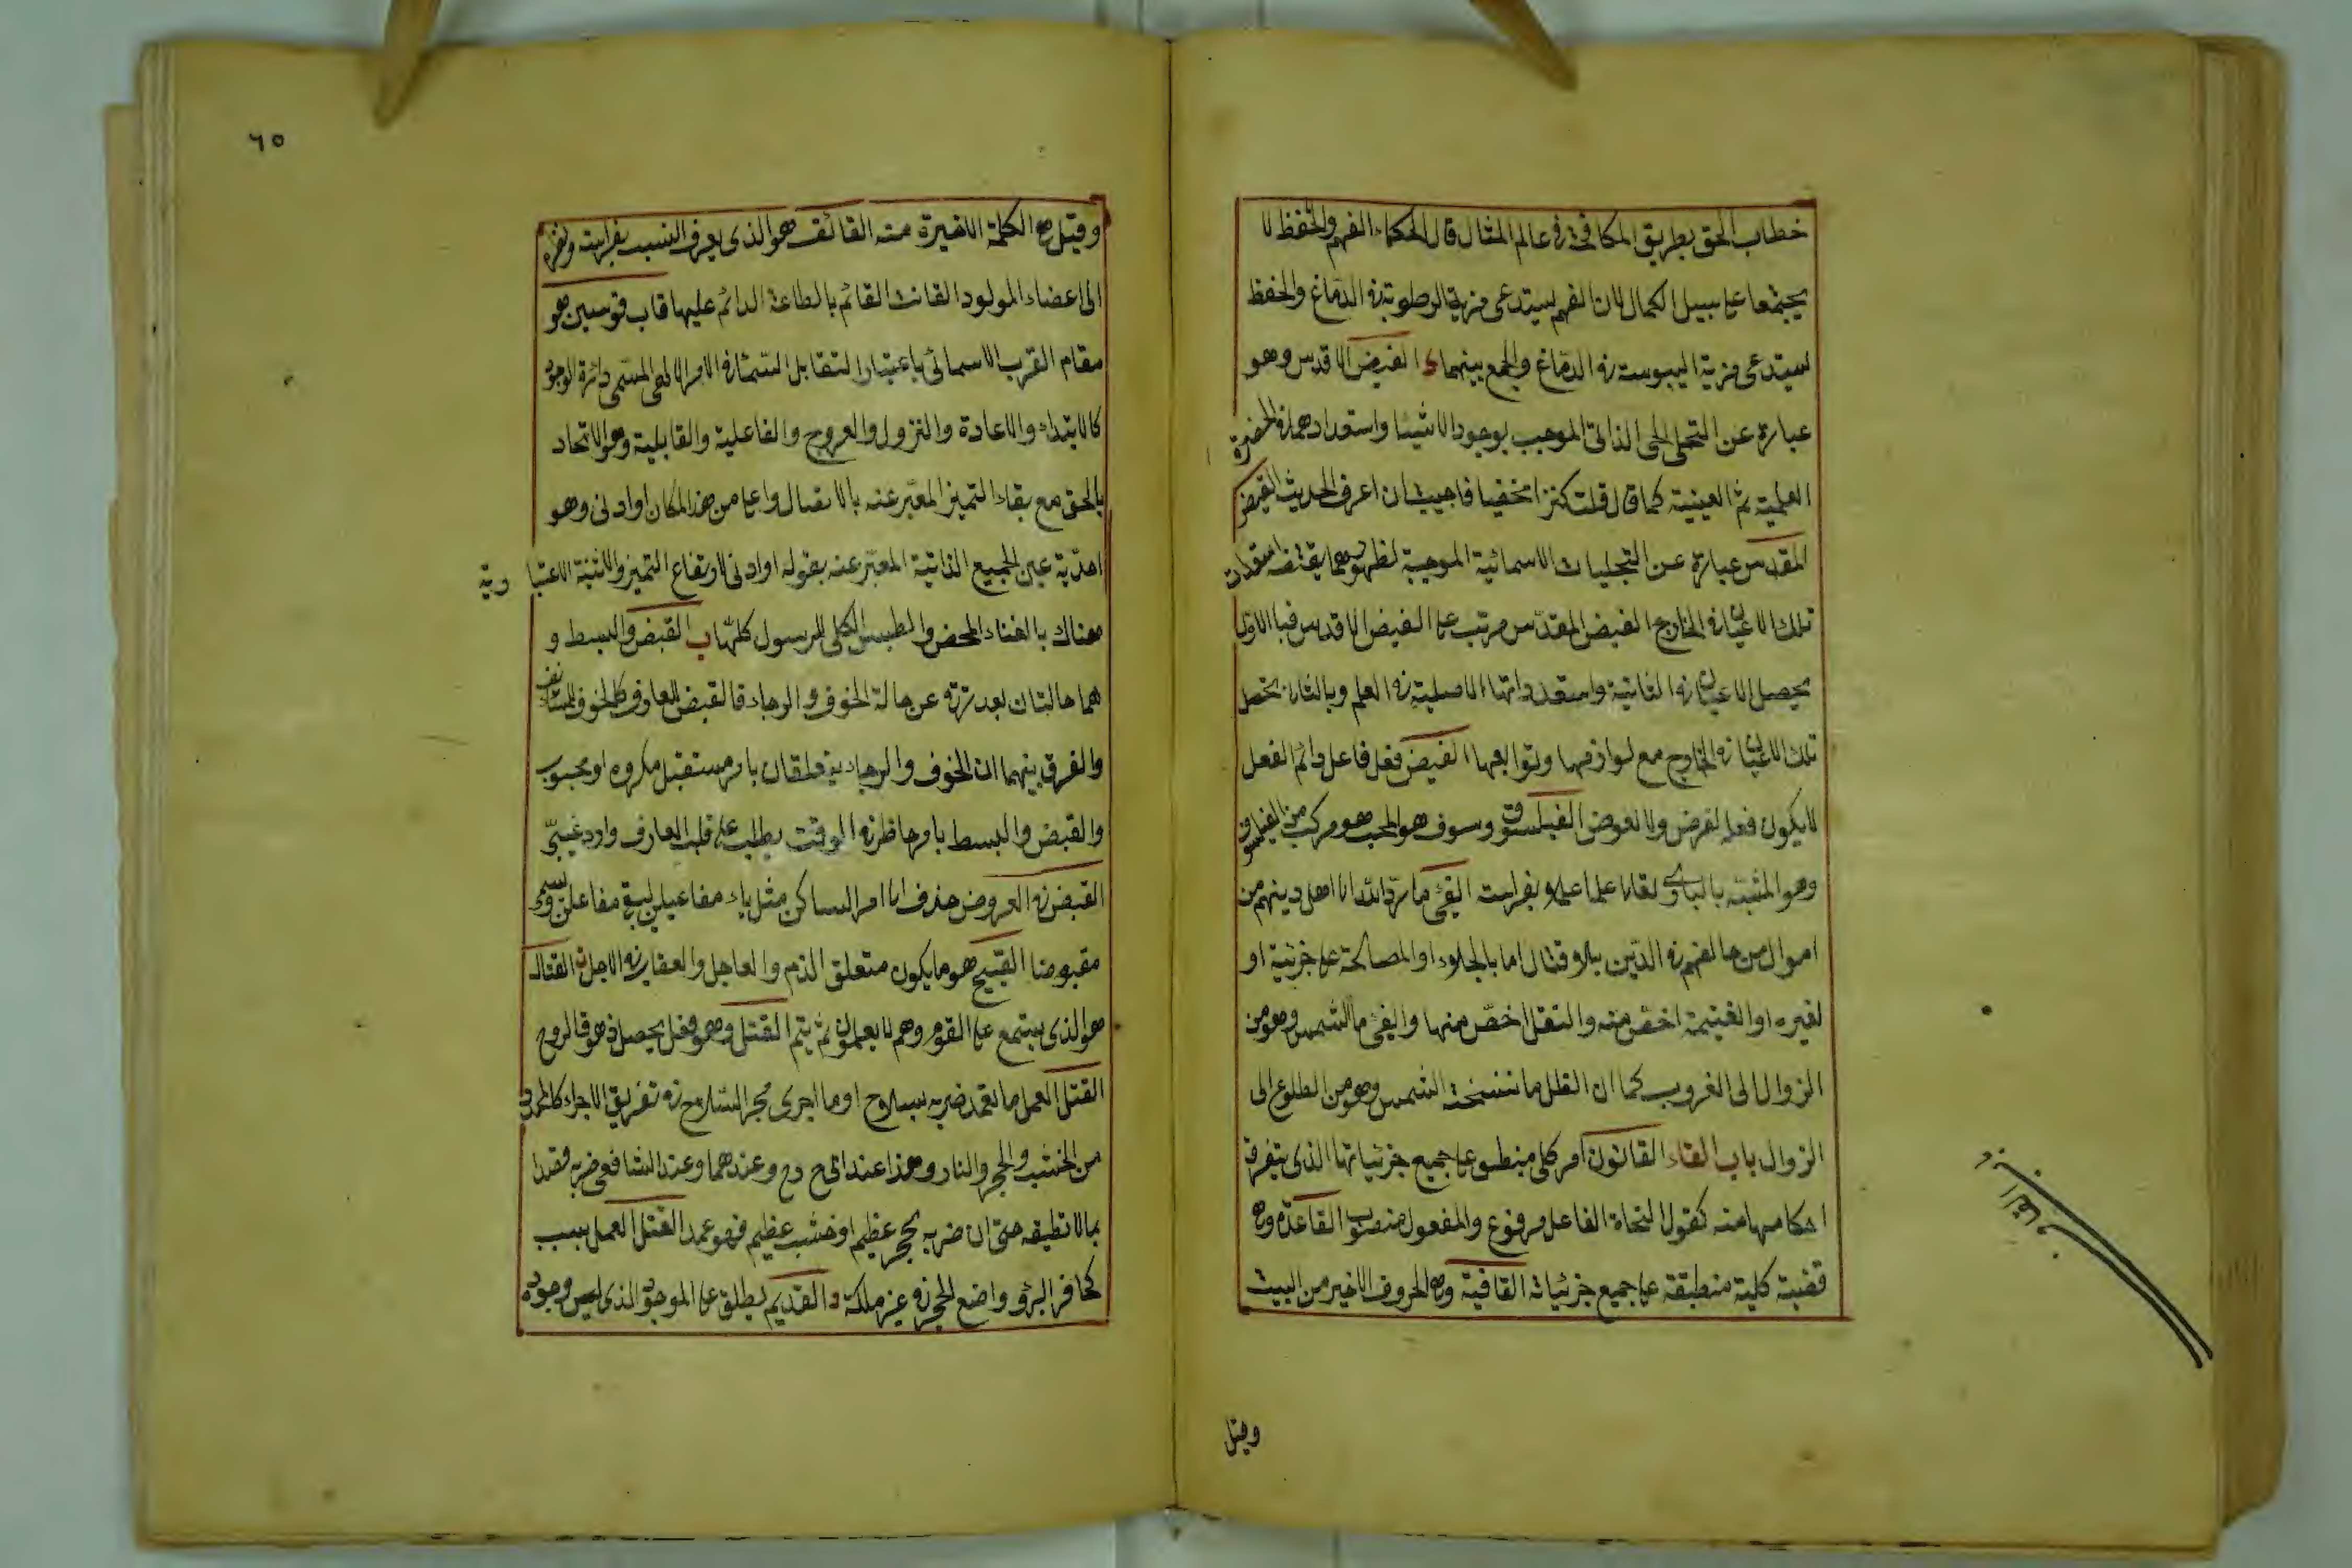 خطاب الحق بطريق المكافحة فى عالم المثال قال الحكماء الفهم والحفظ لا
يجتمعا على سبيل الكمال لان الفهم يستدعى مزية الرطوبة فى الدماغ والحفظ
يستدعى مزية اليبوسته فى الدماغ والجمع بينهما الفيض الاقدس وهو
عبارة عن التجلى الذاتى الموجب بوجود الاشيا واستعدادهما فى الحضرة
العلمية ثم العينية كما قال قلت كنزا مخفيا فاحببت ان اعرف الحديث الفيض
المقدس عبارة عن التجليات الاسمائية الموجبة لظهور ما يقتضه استعدادات
تلك الاعيان فى الخارج الفيض المقدس مرتب على الفيض الاقدس فبا الاول
يحصل الاعيان الثابتة واستعداداتها الاصلية فى العلم وبالثانى تحصل
تلك الاعيان فى الخارج مع لوازمها وتوابعها الفيض فعل فاعل دائم الفعل
لا يكون فعله لغرض ولا لعوض الفيلسوف وسوف هو المحب هو مركب من الفيلسوف
وهو المشبه بالبارى تعالى علما وعملا الفئ ما رده الله الى اهل دينهم من
اموال من خالفهم فى الدين بلا قتال اما بالجلاء او المصالحة على جزئية او
لغيره او الغنيمة اخص منه والنفل اخص منها والفئ ما الشمس وهو من
الزوال الى الغروب كما ان الظل ما نسخته الشمس وهو من الطلوع الى
الزوال باب القاف القانون امر كلى منطبق على جميع جزئياتها الذى يتعرف
احكامها منه كقول النحاة الفاعل مرفوع والمفعول منصوب القاعدة وهى
قضية كلية منطبقة على جميع جزئياته القافية وهى الحروف الاخير من البيت
وقيل
٦٥
وقيل هى الكلمة الاخيرة منه القائف هو الذى يعرف النسب بفراسته ونظره
الى اعضاء المولود القانت القائم بالطاعة الدائم عليها قاب قوسين هو
مقام القرب الاسمائى باعتبار التقابل فى الامر الالهى المسمى دائرة الوجود
كالابتداء والاعادة والنزول والعروج والفاعلية والقابلية وهو الاتحاد
بالحق مع بقاء التميز المعبر عنه بالاتصال واعلى من هذا المكان او ادنى وهو
احدية عين الجميع الذاتية المعبر عنه بقوله او ادنى لارتفاع التميز والاثنية الاعتبا رية
هناك بالفناء المحض والطمس الكلى للرسول كلها القبض والبسط و
هما حالتان بعد ترقى عن حالة الخوف والرجاء فالقبض للعارف كالخوف للمستأنف
والفرق بينهما ان الخوف والرجاء يتعلقان بامر مستقبل مكروه او محبوب
والقبض والبسط بامر حاضر فى الوقت يغلب على قلب العارف وارد غيبى
القبض فى العروض حذف الساكن مثل ياء مفاعيلن ليبقى مفاعلن ويسمى
مقبوضا القبيح هو ما يكون متعلق الذم والعاجل والعقاب فى الاجل القتات
هو الذى يستمع على القوم وهم لا يعلمون ثم ينم القتل وهو فعل يحصل زهوق الروح
القتل العمد ما تعمد ضربه بسلاح او ما اجرى مجرى السلاح فى تفريق الاجزاء كالمحدد
من الخشب والحجر والنار وهذا عند ابى ح رح وعندهما وعند الشافعى ضربه قصدا
بما لا تطيقه حتى ان ضربه بحجر عظيم او خشب عظيم فهو عمد القتل العمل بسبب
كحافر البئر وواضع الحجر فى غير ملكه القديم يطلق على الموجود الذى ليس وجوده